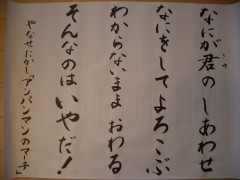 なにが君の しあわせ
なにをしてよろこぶ
わからないまま おわる
そんなのは いやだ!
やなせたかし「アンパンマンのマーチ」